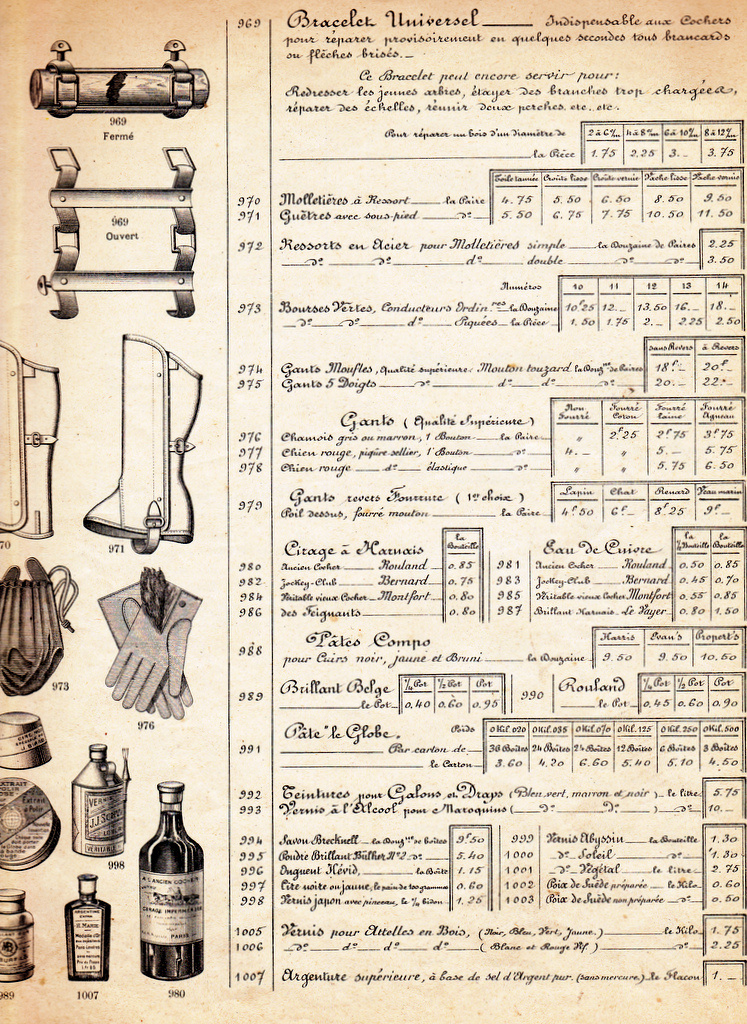 969 Bracelet Universel Indispensable aux Cochers
pour réparer provisoirement en quelques secondes tous brancards
ou flèches brisés.
Ce Bracelet peut encore servir pour:
Redresser les jeunes arbres, étayer des branches trop chargées,
réparer des échelles, réunir deux perches, etc. etc.
969
Fermé
Pour réparer un bois d'un diamètre de 2 à 6 c/m 4 à 8 c/m 6 à 10 c/m 8 à 12 c/m
la Pièce 1.75 2.25 3.- 3.75
Toile tannée Croûte lisse Croûte vernie Vache lisse Vache vernie
970 Molletières à Ressort la Paire 4.75 5.50 6.50 8.50 9.50
971 Guêtres avec sous-pied do 5.50 6.75 7.75 10.50 11.50
969
Ouvert
972 Ressorts en Acier pour Molletières simple la Douzaine de Paires 2.25
do do do double do do 3.50
Numéros 10 11 12 13 14
973 Bourses Vertes, Conducteurs Ordin.res la Douzaine 10f25 12.- 13.50 16.- 18.-
do do do Piquées la Pièce 1.50 1.75 2.- 2.25 2.50
sans Revers à Revers
974 Gants Moufles, Qualité supérieure: Mouton touzard la Douz.ne de Paires 18f- 20f-
975 Gants 5 Doigts do do do do 20.- 22.-
Gants (Qualité Supérieure) Non Fourré Fourré Coton Fourré laine Fourré Agneau
976 Chamois gris ou marron, 1 Bouton la Paire " 2f25 2f75 3f75
977 Chien rouge, piqûre sellier, 1 Bouton do 4.- " 5.- 5.75
978 Chien rouge do élastique do " 5.75 6.50
970
971
Gants revers Fourrure (1er choix) Lapin Chat Renard Veau marin
979 Poil dessus, fourré mouton la Paire 4f50 6f- 8f25 9f-
Cirage à Harnais la Bouteille
980 Ancien Cocher Rouland 0.85
982 Jockey-Club Bernard 0.75
984 Véritable vieux Cocher Montfort 0.80
986 des Feignants 0.80
Eau de Cuivre la ½ Bouteille la Bouteille
981 Ancien Cocher Rouland 0.50 0.85
983 Jockey-Club Bernard 0.45 0.70
985 Véritable vieux Cocher Montfort 0.55 0.85
987 Brillant Harnais Le Payer 0.80 1.50
973
976
Pâtes Compo Harris Evan's Propert's
988 pour Cuirs noir, jaune et Bruni la Douzaine 9.50 9.50 10.50
Brillant Belge ¼ Pot ½ Pot Pot
989 le Pot 0.40 0.60 0.95
990 Rouland ¼ Pot ½ Pot Pot
le Pot 0.45 0.60 0.90
Pâte "le Globe" Poids 0 Kil.020 0 Kil.035 0 Kil.070 0 Kil.125 0 Kil.250 0 Kil.500
991 Par carton de 36 Boîtes 24 Boîtes 24 Boîtes 12 Boîtes 6 Boîtes 3 Boîtes
le Carton 3.60 4.20 6.60 5.40 5.10 4.50
992 Teintures pour Galons et Draps (Bleu, vert, marron et noir) le litre 5.75
993 Vernis à l'Alcool pour Maroquins (do do) do 10.-
994 Savon Brecknell la Douz.ne de boîtes 9f50
995 Poudre Brillant Bülher No 2 do 5.40
996 Onguent Hévid, la Boîte 1.15
997 Cire noire ou jaune, le pain de 100 grammes 0.60
998 Vernis japon avec pinceau, le ¼ bidon 1.25
999 Vernis Abyssin la Bouteille 1.30
1000 do Soleil do 1.30
1001 do Végétal le litre 2.75
1002 Poix de Suède préparée le Kilo 0.60
1003 Poix de Suède non préparée do 0.50
1005 Vernis pour Attelles en Bois, (Noir, Bleu, Vert, Jaune.) le Kilo 1.75
1006 do do do do (Blanc et Rouge Vif) do 2.25
1007 Argenture supérieure, à base de sel d'Argent pur. (sans mercure.) le Flacon 1.-
EXTRAIT
VERNIS
VERITABLE
998
A L'ANCIEN COCHER
CIRAGE IMPERMEABLE
PARIS
ARGENTURE
H. MARIE
989
1007
980